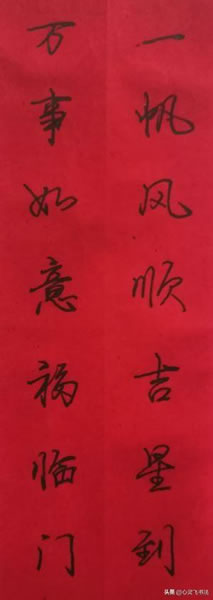 一帆风顺吉星到
万事如意福临门
头条@心灵飞书法